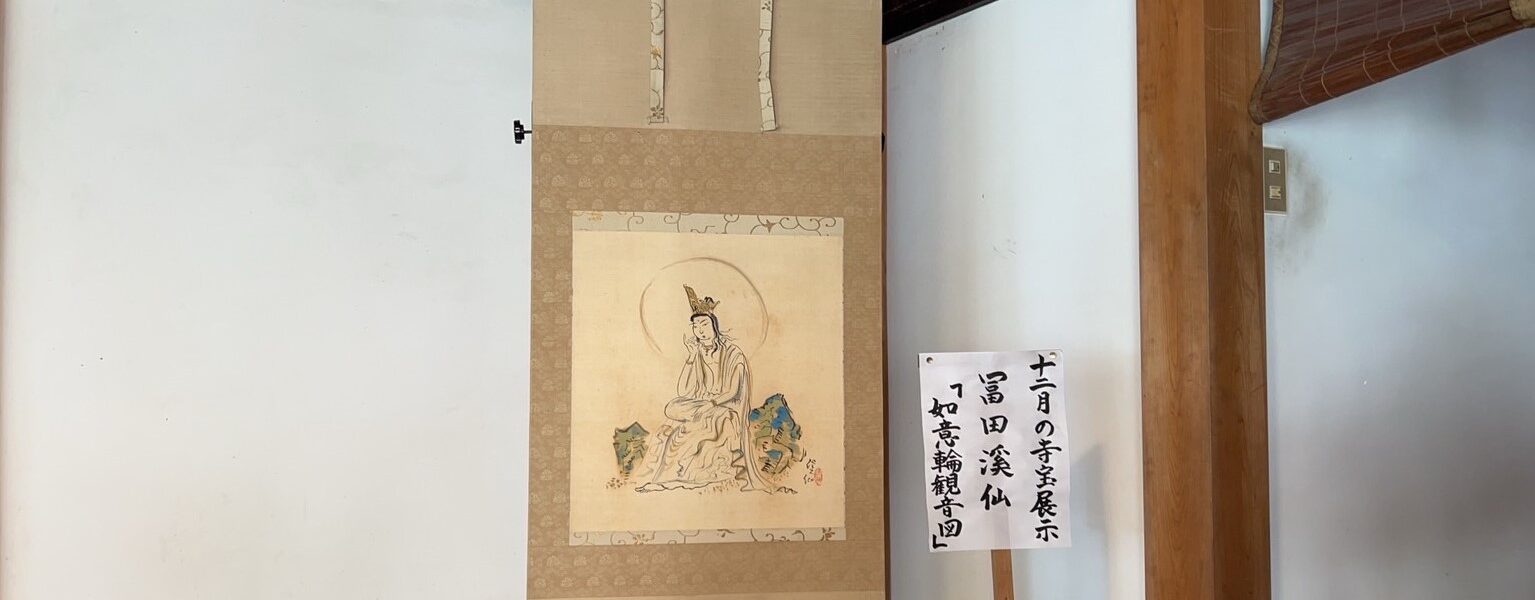 十二月の寺宝展示
冨田溪仙
「如意輪観音図」